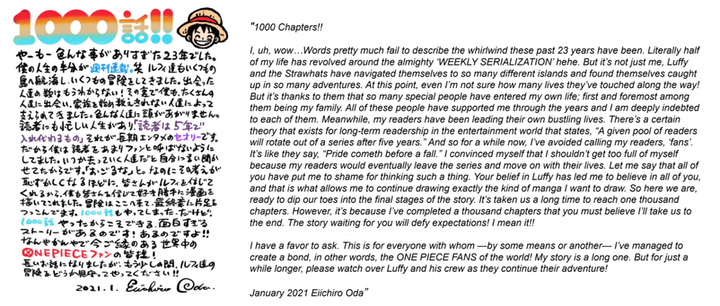 1000話!!
やーもー色んな事がありすぎた23年でした。
僕の人生の半分が週刊連載。笑 ルフィ達もいくつもの
島へ航海し、いくつもの冒険をしてきました。出会った
人達の数はもうわからない!その裏で僕も、たくさんの
人達に出会い、家族を始め数えきれない人達によって
支えられて生きました。色んな人達に頭があがりません。
読者にも忙しい人生があり「読者は5年で
入れ代わるもの」それが長期エンタメのセオリーです。
だから僕は読者をあまりファンと呼ばないように
してました。いつか去っていく人達だと自分に言い聞か
せてたからです。「おごるな」と。なのにその考えが
恥ずかしくなるほどに、皆さんがルフィを信じて
くれるから、僕も皆さんを信じて好き勝手に漫画を
描いてこれました。冒険はここへきて、最終章に片足を
つっこんでます。1000話もやってしまった。だけど!
1000話やったからこそできる、面白すぎる
ストーリーがあるのです!あるのですよ!!
なんやかんやで今ご縁のある世界中の
ONE PIECEファンの皆様!
長いお話になりましたが、もう少しの間、ルフィ達の
冒険をどうか見守ってやってください!!
2021.1. Eiichiro Oda.
"1000 Chapters!!
I, uh, wow…Words pretty much fail to describe the whirlwind these past 23 years have been. Literally half
of my life has revolved around the almighty 'WEEKLY SERIALIZATION' hehe. But it's not just me, Luffy
and the Strawhats have navigated themselves to so many different islands and found themselves caught
up in so many adventures. At this point, even I'm not sure how many lives they've touched along the way!
But it's thanks to them that so many special people have entered my own life; first and foremost among
them being my family. All of these people have supported me through the years and I am deeply indebted
to each of them. Meanwhile, my readers have been leading their own bustling lives. There's a certain
theory that exists for long-term readership in the entertainment world that states, "A given pool of readers
will rotate out of a series after five years." And so for a while now, I've avoided calling my readers, 'fans'.
It's like they say, "Pride cometh before a fall." I convinced myself that I shouldn't get too full of myself
because my readers would eventually leave the series and move on with their lives. Let me say that all of
you have put me to shame for thinking such a thing. Your belief in Luffy has led me to believe in all of you,
and that is what allows me to continue drawing exactly the kind of manga I want to draw. So here we are,
ready to dip our toes into the final stages of the story. It's taken us a long time to reach one thousand
chapters. However, it's because I've completed a thousand chapters that you must believe I'll take us to
the end. The story waiting for you will defy expectations! I mean it!!
I have a favor to ask. This is for everyone with whom —by some means or another— I've managed to
create a bond, in other words, the ONE PIECE FANS of the world! My story is a long one. But for just a
while longer, please watch over Luffy and his crew as they continue their adventure!
January 2021 Eiichiro Oda"